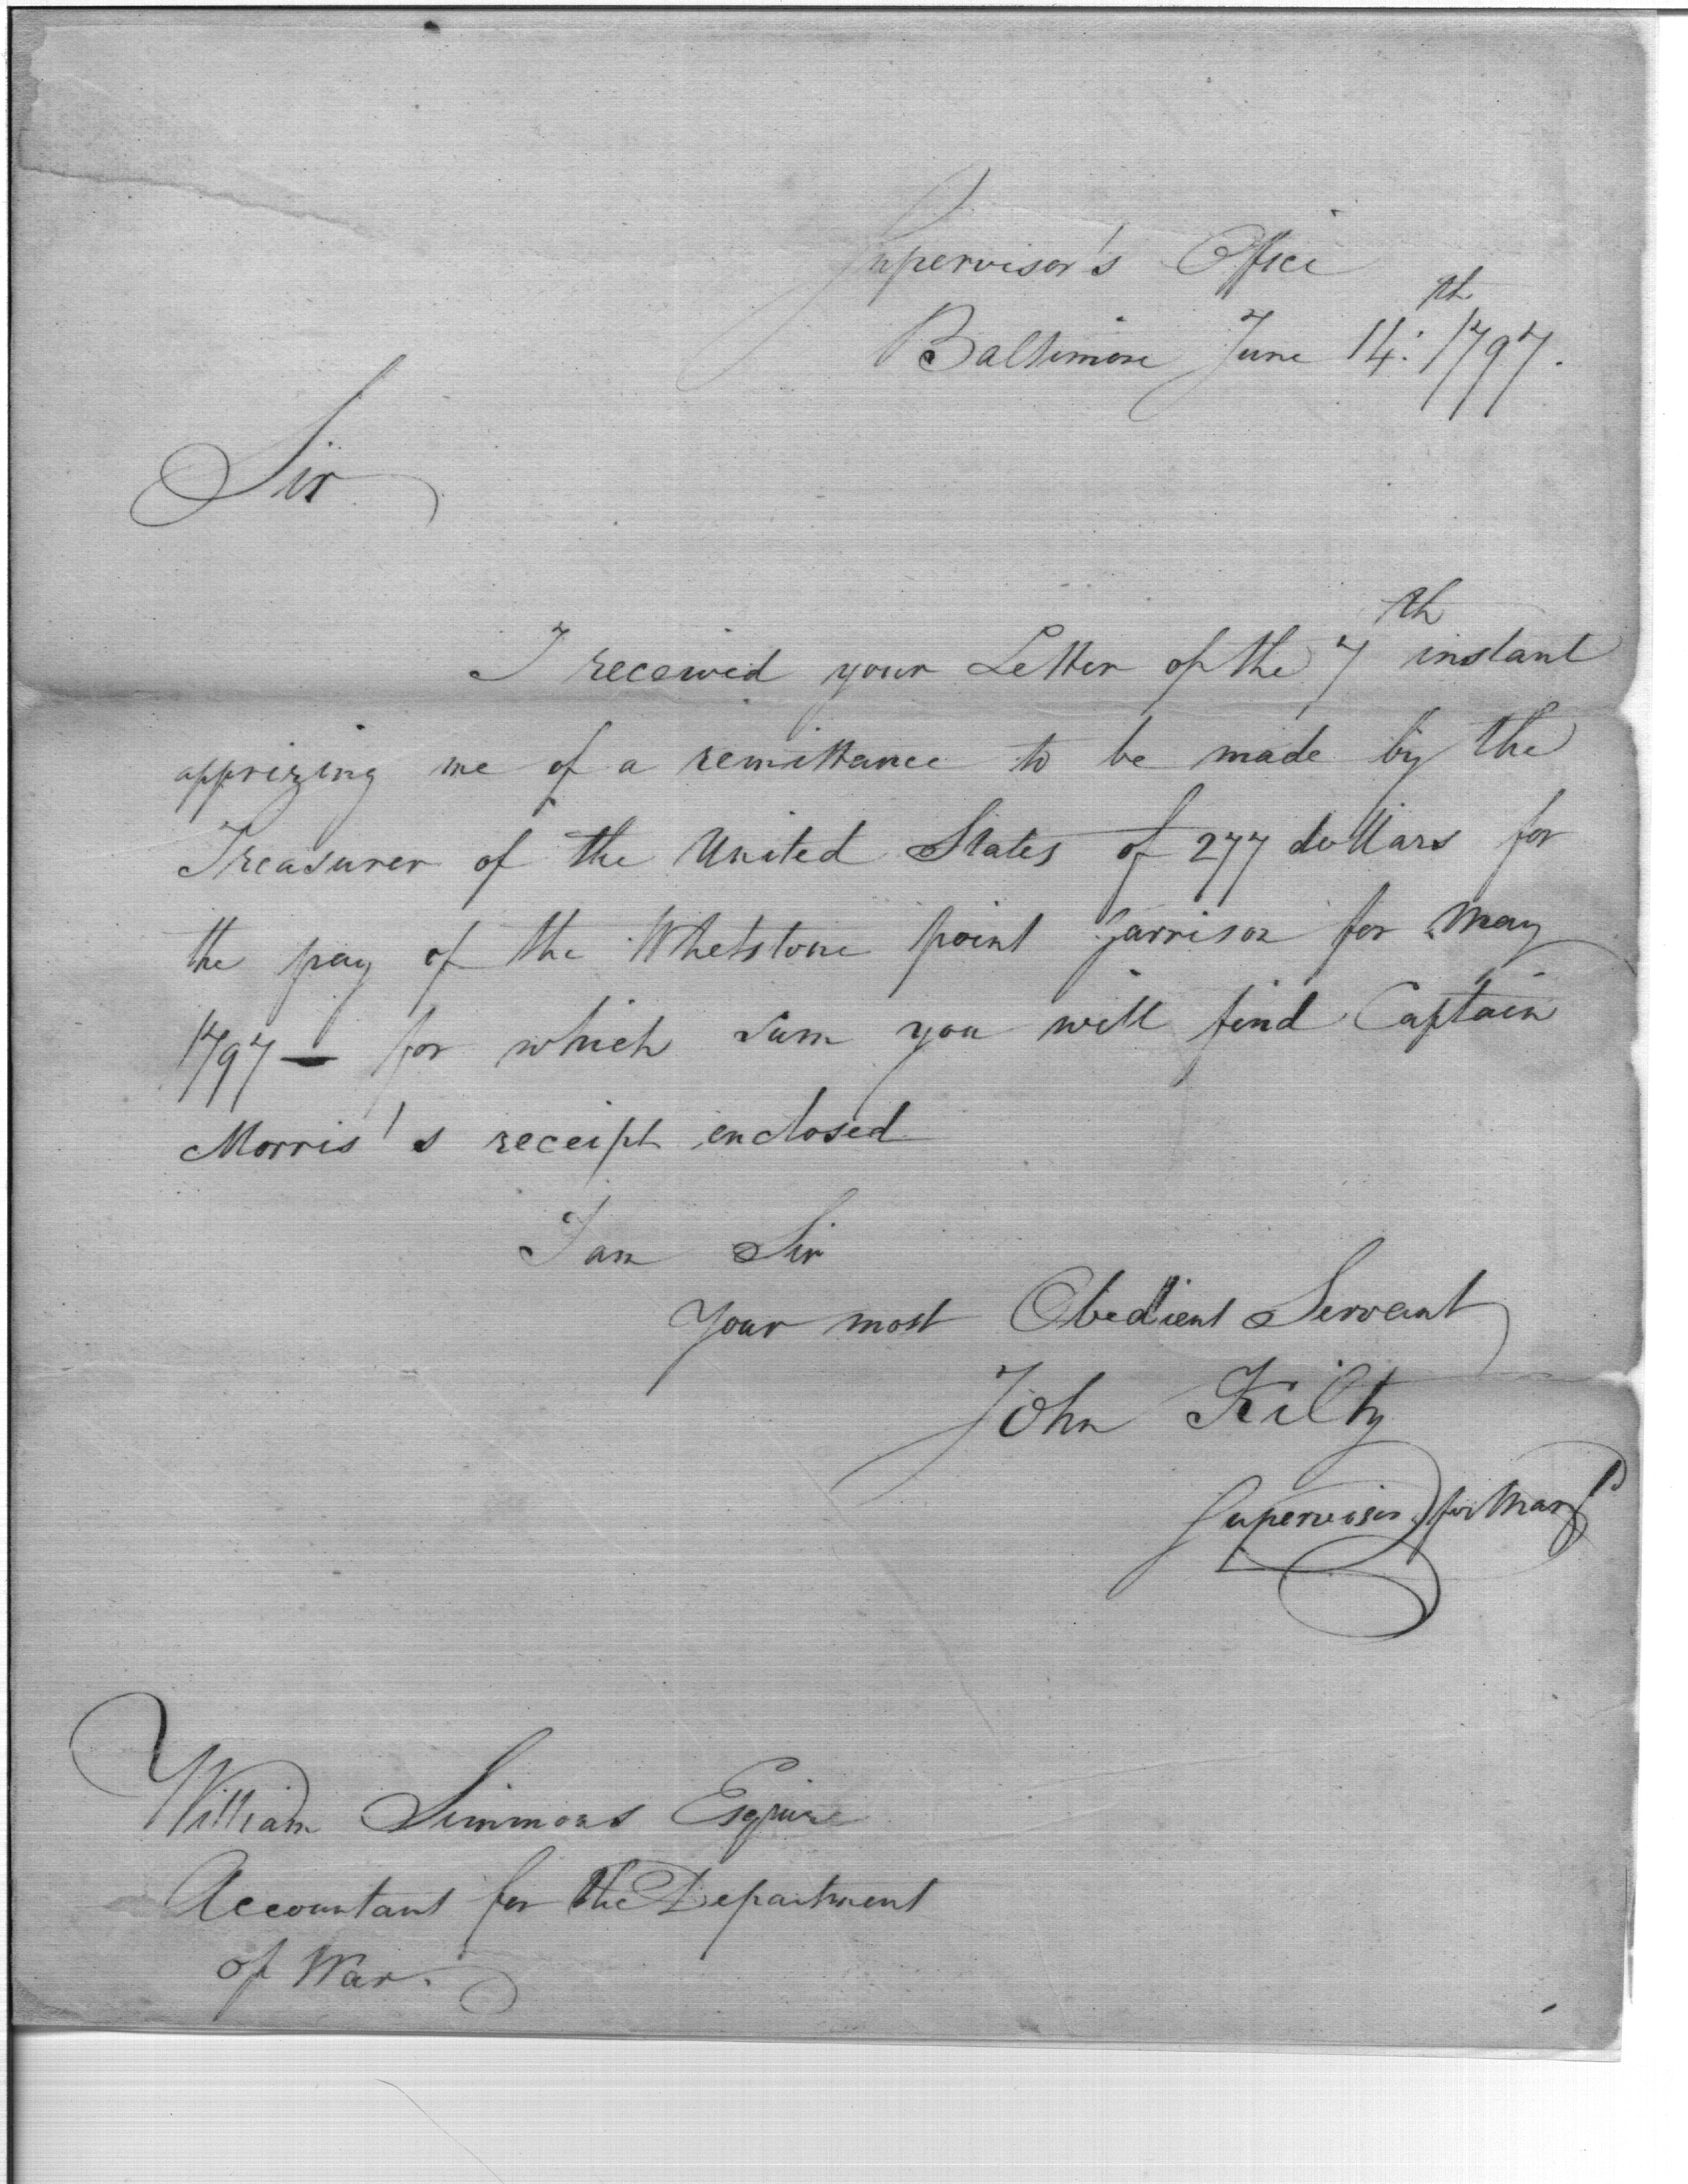 Supervisor's Office
Baltimore June 14:th 1797.
Sir
I received your Letter of the 7th instant
apprizing me of a remittance to be made by the
Treasurer of the United States of 277 dollars for
the pay of the Whetstone point Garrison for May
1797 — for which Sum you will find Captain
Morris's receipt enclosed
I am Sir
Your most Obedient Servant
John Kilty
Supervisor for Maryd
William Simmons Esquire
Accountant for the Department
of War.